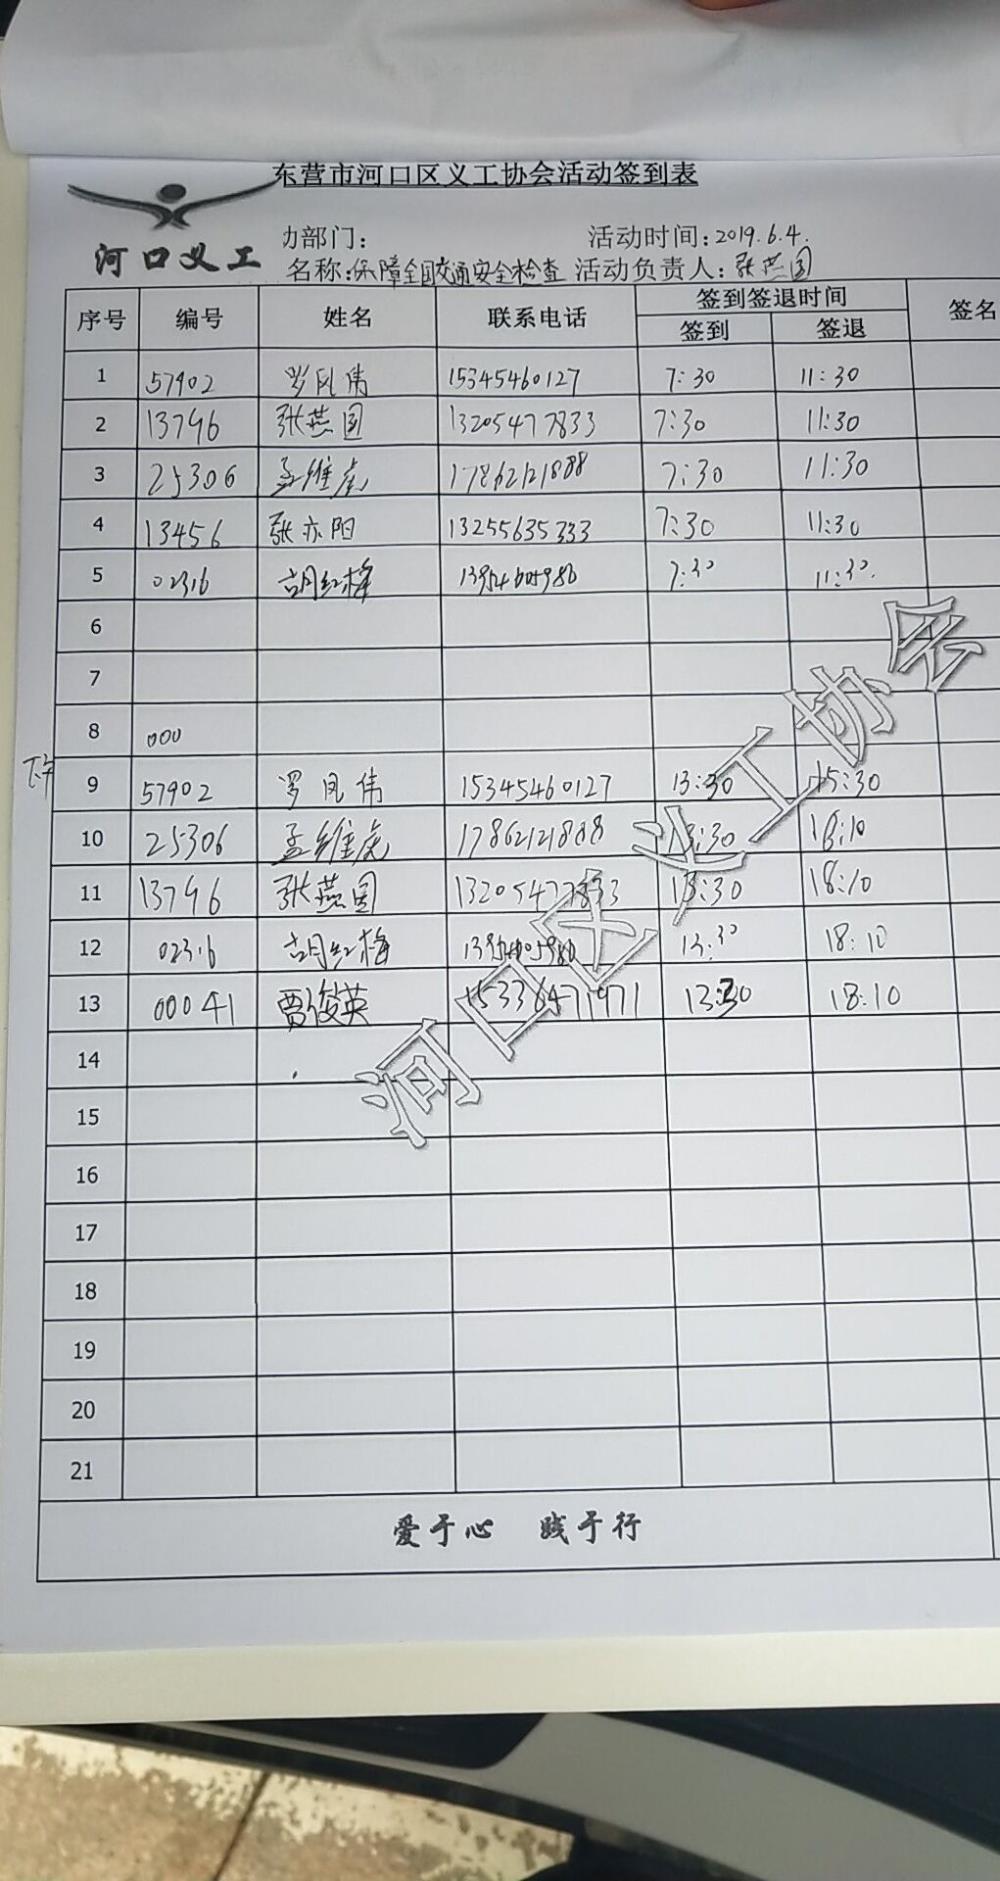 东营市河口区义工协会活动签到表
河口义工
部门:
活动时间:2019.6.4.
名称:保障全国交通安全检查 活动负责人:张燕国
序号 编号 姓名 联系电话 签到签退时间 签名
签到 签退
1 57902 罗凤伟 15345460127 7:30 11:30
2 13796 张燕国 13205477833 7:30 11:30
3 25306 孟维虎 17862121888 7:30 11:30
4 13456 张亦阳 13255635333 7:30 11:30
5 02316 胡红梅 7:30 11:30.
6
7
8 000
下午
9 57902 罗凤伟 15345460127 13:30 15:30
10 25306 孟维虎 17862121888 13:30 18:10
11 13796 张燕国 13205477833 13:30 18:10
12 02316 胡红梅 13:30 18:10
13 00041 贾俊英 15336471971 13:30 18:10
14
15
16
17
18
19
20
21
河口区义工协会
爱于心 践于行